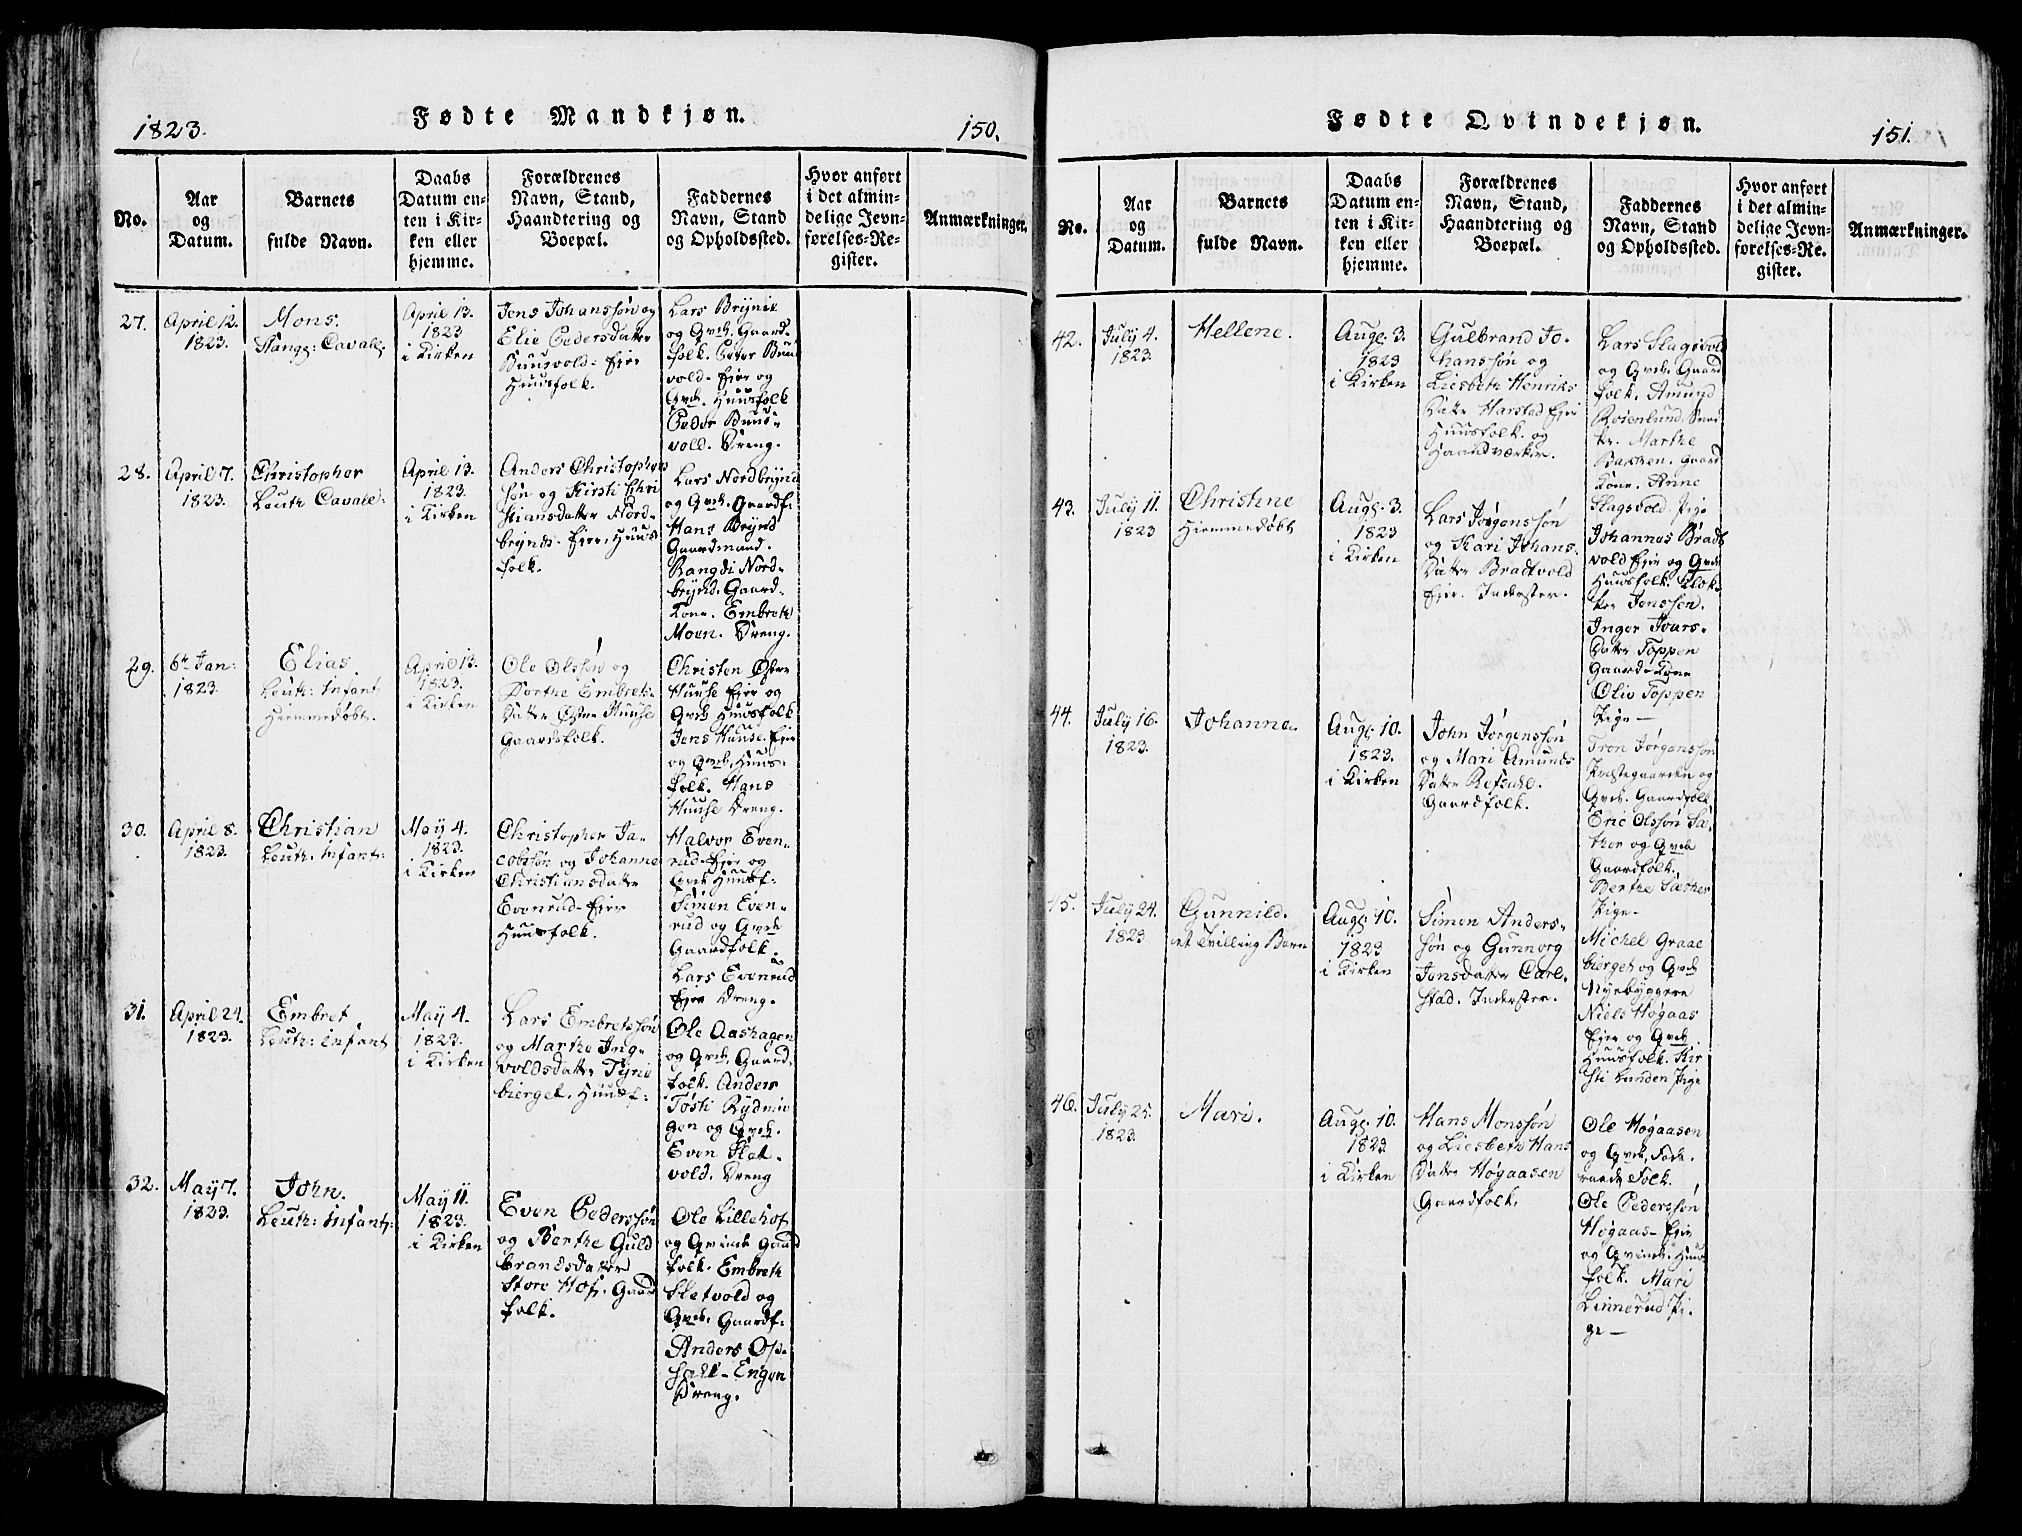 1823.
Fødte Mandkjøn.
150.
No.
Aar
og
Datum.
Barnets
fulde Navn.
Daabs
Datum en-
ten i Kir-
ken eller
hjemme.
Forældrenes
Navn, Stand,
Haandtering og
Boepæl.
Faddernes
Navn, Stand
og Opholdssted.
Hvor anført
i det almin-
delige Jevn-
førelses-Re-
gister.
Anmærkninger.
27.
April 12.
1823.
Mons.
April 13.
1823
i Kirken
Jens Johanssøn og
Elie Pedersdatter
Huusfolk.
Lars Brynie
og Qvde. Gaard-
folk.
vold. Eier og
Qvde. Huusfolk
vold. Dreng.
28.
April 7.
1823.
Christopher
April 13.
1823.
i Kirken
Anders Christophers
søn og Kirsti Chri
stiansdatter Nord-
brynd. Eier. Huus
folk.
Lars Nordbrynd
og Qvde. Gaardf.
Hans Brynd
Gaardmand.
Rangdi Nord-
brynd. Gaard-
kone. Embreth
Moen. Dreng.
29.
6te Jan:
1823.
Elias
Leuth: Infant
Hiemmedøbt.
April 13.
1823.
i Kirken
Ole Olssøn og
Dorthe Embrets-
datter Østre Huuse
Gaardsfolk.
Christen Østre
Huuse Eier og
Qvde Huusfolk
Jens Huuse. Eier
og Qvde. Huus-
folk. Hans
Huuse Dreng.
30.
April 8.
1823.
Christian
Leuth. Infant:
May 4.
1823.
i Kirken
Christopher Ja-
cobssøn og Johanne
Christiansdatter
Evenrud-Eier
Huusfolk.
Halvor Even-
rud-Eier og
Qvde Huusf:
Simen Even-
rud og Qvde
Gaardfolk.
Lars Evenrud
Eier Dreng.
31.
April 24.
1823.
Embret
Leuth: Infant
May 4.
1823.
i Kirken
Lars Embretssøn
og Marthe Ing-
voldsdatter Tyrie
bierget. Huusf:
Ole Aashagen
og Qvde. Gaard-
folk. Anders
Tøsti Rydnin
gen og Qvde.
Even Slet-
vold. Dreng
32.
May 7.
1823.
John.
Leuth: Infant:
May 11.
1823.
i Kirken
Even Pederssøn
og Berthe Guld
brandsdatter
Store Hof. Gaard
folk.
Ole Lillehof
og Qvinde Gaard
folk. Embreth
Sletvold og
Qvde. Gaardf.
Anders
Engen
Dreng.
Fødte Qvindekjøn.
151.
No.
Aar
og
Datum.
Barnets
fulde Navn.
Daabs
Datum en-
ten i Kir-
ken eller
hjemme.
Forældrenes
Navn, Stand,
Haandtering og
Boepæl.
Faddernes
Navn, Stand
og Opholdssted.
Hvor anført
i det almin-
delige Jevn-
førelses-Re-
gister.
Anmærkninger.
42.
July 4.
1823.
Hellene.
Aug. 3.
1823
i Kirken
Gulbrand Jo-
hanssøn og
Liesbeth Henriks
datter Harstad Eier
Huusfolk. og
Haandværker.
Lars Slagsvold
og Qvde Gaard
folk. Amund
Marthe
Bakken. Gaard
kone. Anne
Slagsvold. Pige
43.
July 11.
1823
Christine
Hiemmedøbt
Aug. 3.
1823
i Kirken
Lars Jørgenssøn
og Kari Johans-
datter Bradtvold
Eier. Inderster.
Johannes Bradt
vold Eier og Qvde
Huusfolk. Klok-
ker Jenssen.
Inger Ivars-
datter Toppen
Gaard-Kone
Oliv Toppen
Pige —
44.
July 16.
1823.
Johanne.
Aug. 10.
1823.
i Kirken
John Jørgenssøn
og Mari Amunds
datter Refsahl.
Gaardfolk.
Tron Jørgenssøn
Prestegaarden og
Qvde. Gaardfolk
Eric Olssøn Sæ-
ther og Qvde
Gaardfolk.
Berthe Sæther
Pige.
45.
July 24.
1823
Gunnild.
et Tvilling Barn
Aug. 10.
1823
i Kirken
Simon Anders-
søn og Gunnorg
Jensdatter Carl-
stad. Inderster.
Michel Graae
bierget og Qvde
Nyebyggere
Niels Høgaas
Eier og Qvde
Huusfolk. Kir
sti Lunden Pige
46.
July 25.
1823.
Mari.
Aug. 10.
1823
i Kirken
Hans Monssøn
og Liesbeth Hans
datter Høgaasen
Gaardfolk.
Ole Høgaasen
og Qvde, Føde-
raads Folk.
Ole Pederssøn
Høgaas-Eier
og Qvinde. Huus
folk. Mari
Linnerud Pi-
ge —